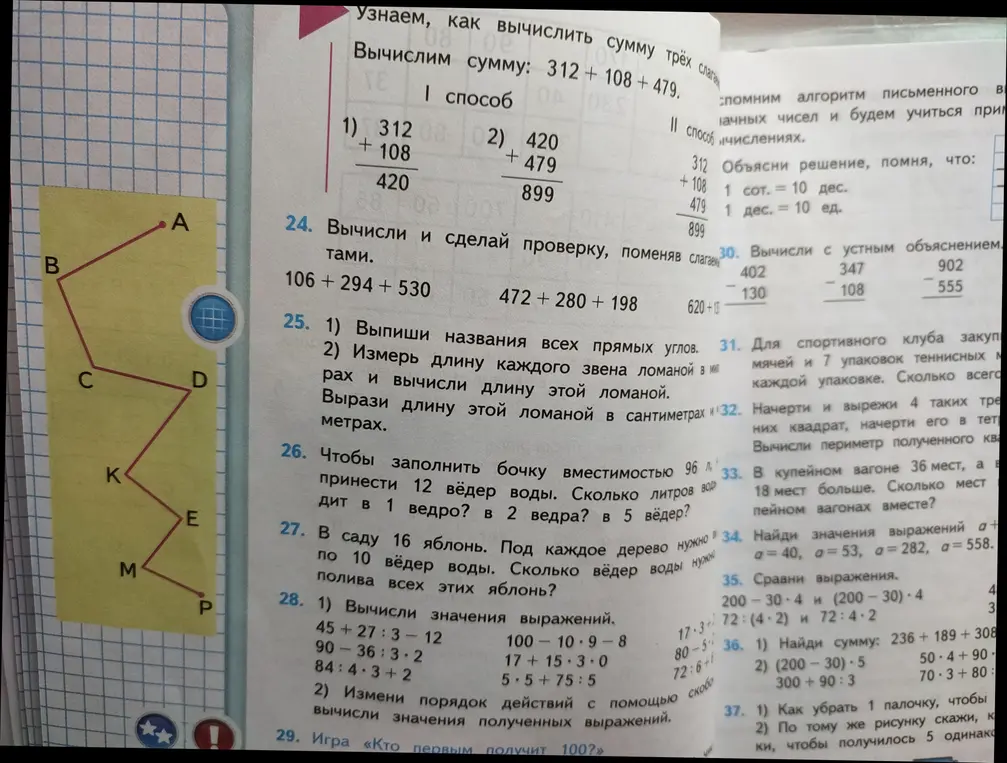 Узнаем, как вычислить сумму трёх
Вычислим сумму: 312 + 108 + 479.
I способ
II способ
1) 312
+ 108
420
2) 420
+ 479
899
312
+ 108
479
899
24. Вычисли и сделай проверку, поменяв
тами.
106 + 294 + 530
472 + 280 + 198
620 +
25. 1) Выпиши названия всех прямых углов.
2) Измерь длину каждого звена ломаной в
рах и вычисли длину этой ломаной.
Вырази длину этой ломаной в сантиметрах и
метрах.
26. Чтобы заполнить бочку вместимостью 96 л,
принести 12 вёдер воды. Сколько литров
дит в 1 ведро? в 2 ведра? в 5 вёдер?
27. В саду 16 яблонь. Под каждое дерево нужно
по 10 вёдер воды. Сколько вёдер воды
полива всех этих яблонь?
28. 1) Вычисли значения выражений.
45 + 27 : 3 − 12
100 − 10 · 9 − 8
17 · 3
90 − 36 : 3 · 2
17 + 15 · 3 · 0
80 − 5
84 : 4 · 3 + 2
5 · 5 + 75 : 5
72 : 6 +
2) Измени порядок действий с помощью
вычисли значения полученных выражений.
29. Игра «Кто первым получит 100?»
A
B
C
D
K
E
M
P
спомним алгоритм письменного
начных чисел и будем учиться
ычислениях.
Объясни решение, помня, что:
1 сот. = 10 дес.
1 дес. = 10 ед.
30. Вычисли с устным объяснением.
402
− 130
347
− 108
902
− 555
31. Для спортивного клуба
мячей и 7 упаковок теннисных
каждой упаковке. Сколько всего
32. Начерти и вырежи 4 таких
них квадрат, начерти его в
Вычисли периметр полученного
33. В купейном вагоне 36 мест, а в
18 мест больше. Сколько мест
пейном вагонах вместе?
34. Найди значения выражений a +
a = 40, a = 53, a = 282, a = 558.
35. Сравни выражения.
200 − 30 · 4 и (200 − 30) · 4
4
72 : (4 · 2) и 72 : 4 · 2
3
36. 1) Найди сумму: 236 + 189 + 308
2) (200 − 30) · 5
50 · 4 + 90 ·
300 + 90 : 3
70 · 3 + 80 :
37. 1) Как убрать 1 палочку, чтобы
2) По тому же рисунку скажи,
ки, чтобы получилось 5